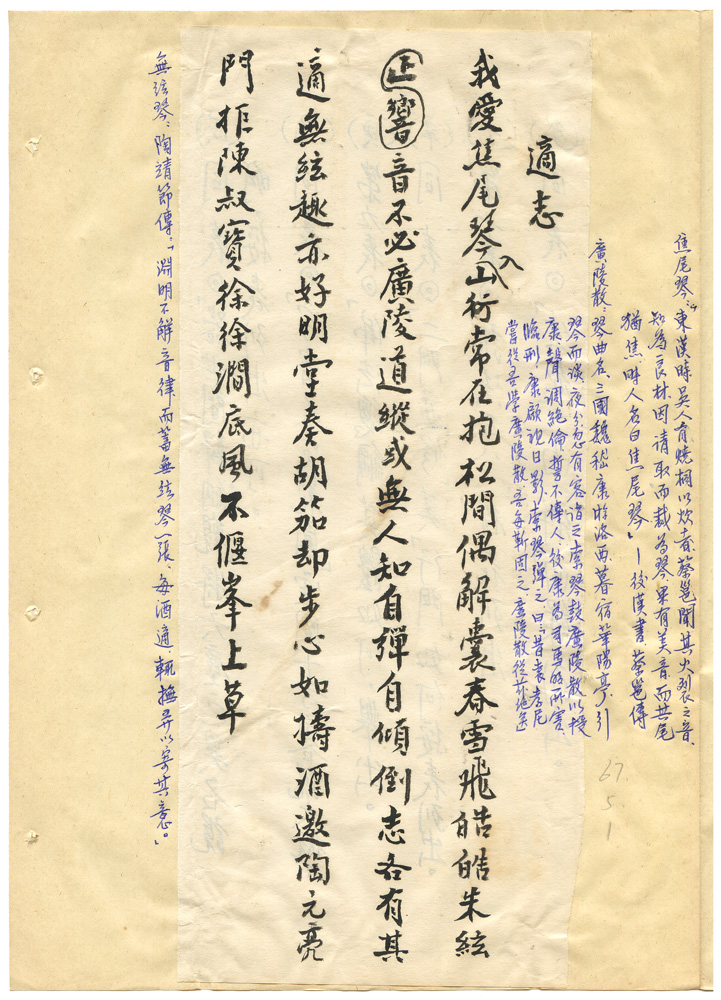 焦尾琴：「東漢時吳人有燒桐以炊者，蔡邕聞其火裂之音，
知為良材，因請取而裁為琴，果有美音，而其尾
猶焦，時人名曰焦尾琴」—後漢書 蔡邕傳
廣陵散：琴曲名，三國魏嵇康游洛西，暮宿華陽亭，引
琴而談，夜分忽有客詣之，索琴鼓廣陵散，以授
康，聲調絕倫，誓不傳人，後康為司馬昭所害，
臨刑，康顧視日影，索琴彈之，曰：昔袁孝尼
嘗從吾學廣陵散，吾每靳固之，廣陵散從茲絕矣
67.
5.
1
適志
我愛焦尾琴入山行常在抱松間偶解囊春雪飛皓皓朱絃
正響音不必廣陵道縱或無人知自彈自傾倒志各有其
適無絃趣亦好明堂奏胡笳却步心如擣酒邀陶元亮
門拒陳叔寶徐徐澗底風不偃峯上草
無弦琴：陶靖節傳：「淵明不解音律，而蓄無弦琴一張，每酒適，輒撫弄以寄其意。」